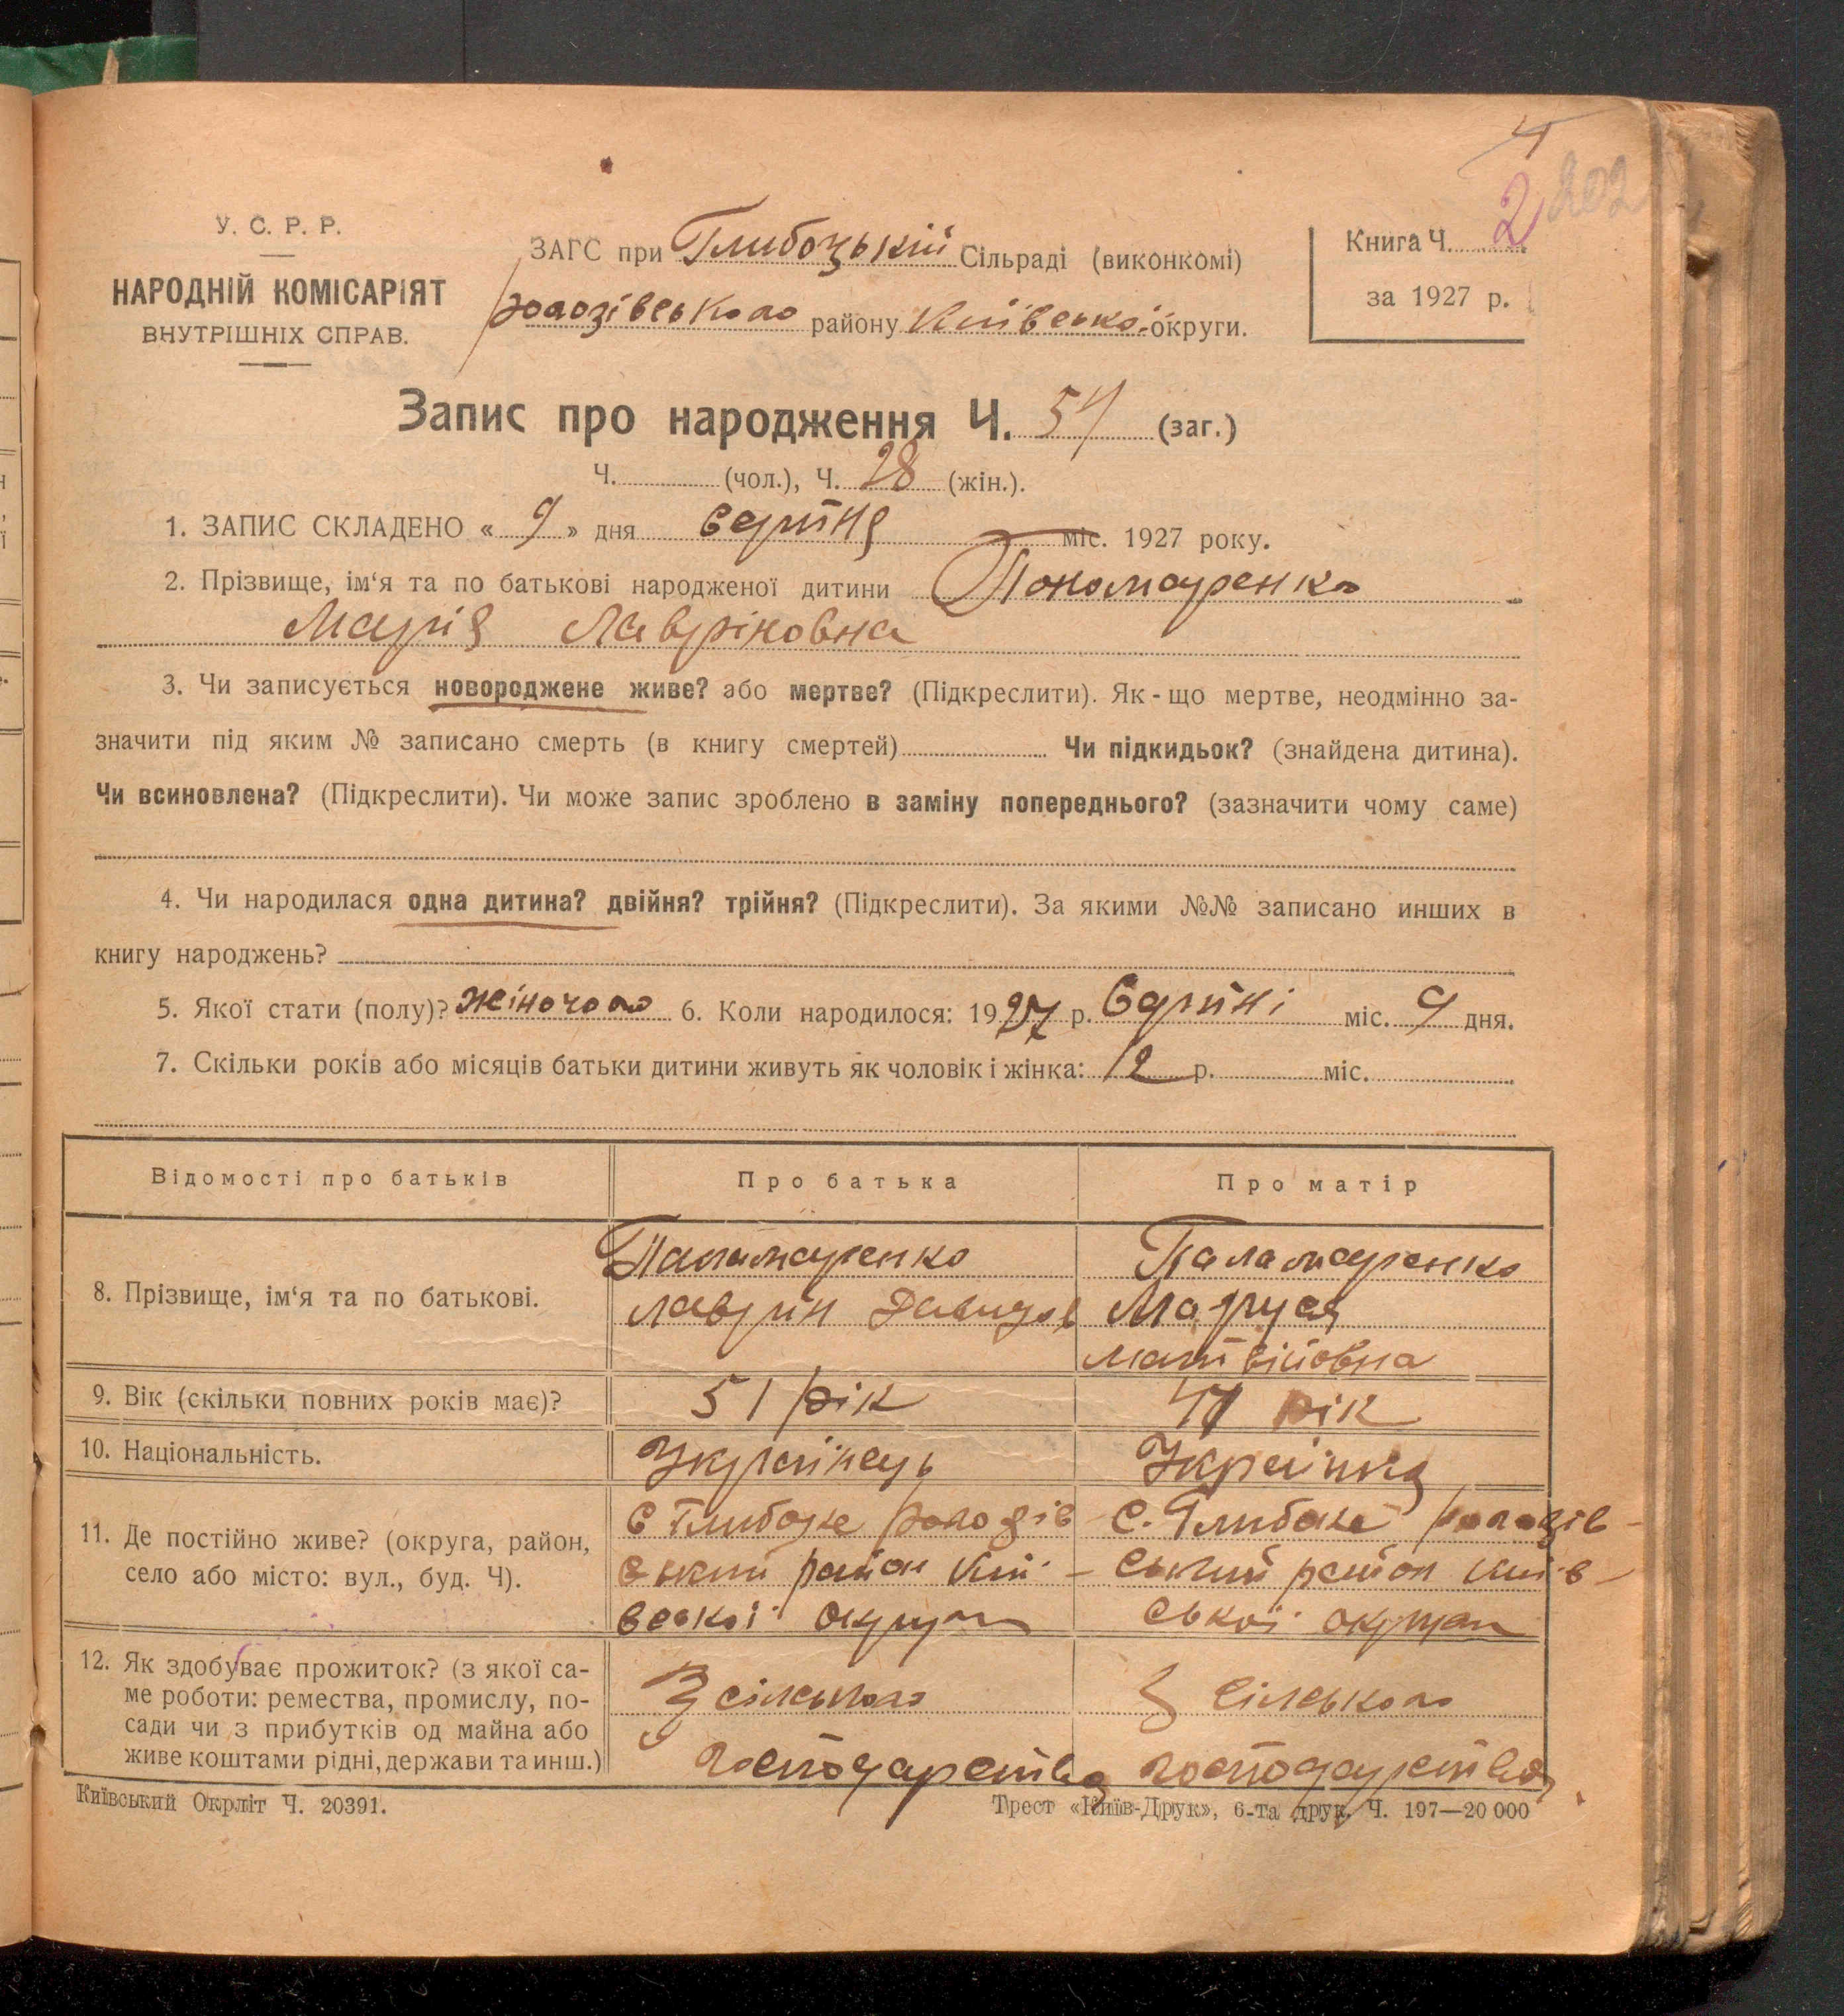 4
2 202
У. С. Р. Р.
НАРОДНІЙ КОМІСАРІЯТ
ВНУТРІШНІХ СПРАВ.
ЗАГС при Глибоцькій Сільраді (виконкомі)
рогозівського району Київської округи.
Книга Ч.
за 1927 р.
Запис про народження Ч. 54 (заг.)
Ч. (чол.), Ч. 28 (жін.).
1. ЗАПИС СКЛАДЕНО « 9 » дня Серпня міс. 1927 року.
2. Прізвище, ім‘я та по батькові народженої дитини Пономаренко
Марія Лавріновна
3. Чи записується новороджене живе? або мертве? (Підкреслити). Як-що мертве, неодмінно за-
значити під яким № записано смерть (в книгу смертей) Чи підкидьок? (знайдена дитина).
Чи всиновлена? (Підкреслити). Чи може запис зроблено в заміну попереднього? (зазначити чому саме)
4. Чи народилася одна дитина? двійня? трійня? (Підкреслити). За якими №№ записано инших в
книгу народжень?
5. Якої стати (полу)? жіночого 6. Коли народилося: 1927 р. Серпні міс. 9 дня.
7. Скільки років або місяців батьки дитини живуть як чоловік і жінка: 12 р. міс.
Відомості про батьків Про батька Про матір
8. Прізвище, ім‘я та по батькові.
Паламаренко
Лаврин Давидов
Паламаренко
Маруся
Матвійовна
9. Вік (скільки повних років має)? 51 рік 41 рік
10. Національність. Українець Українка
11. Де постійно живе? (округа, район,
село або місто: вул., буд. Ч).
с Глибоке рогозів
ський район Киї-
вської округи
с. Глибоке рогозів-
ський район Київ-
ської округи
12. Як здобуває прожиток? (з якої са-
ме роботи: ремества, промислу, по-
сади чи з прибутків од майна або
живе коштами рідні, держави та инш.)
З сільського
господарства
З сільського
господарства
Київський Окрліт Ч. 20391.
Трест «Київ-Друк», 6-та друк. Ч. 197—20 000